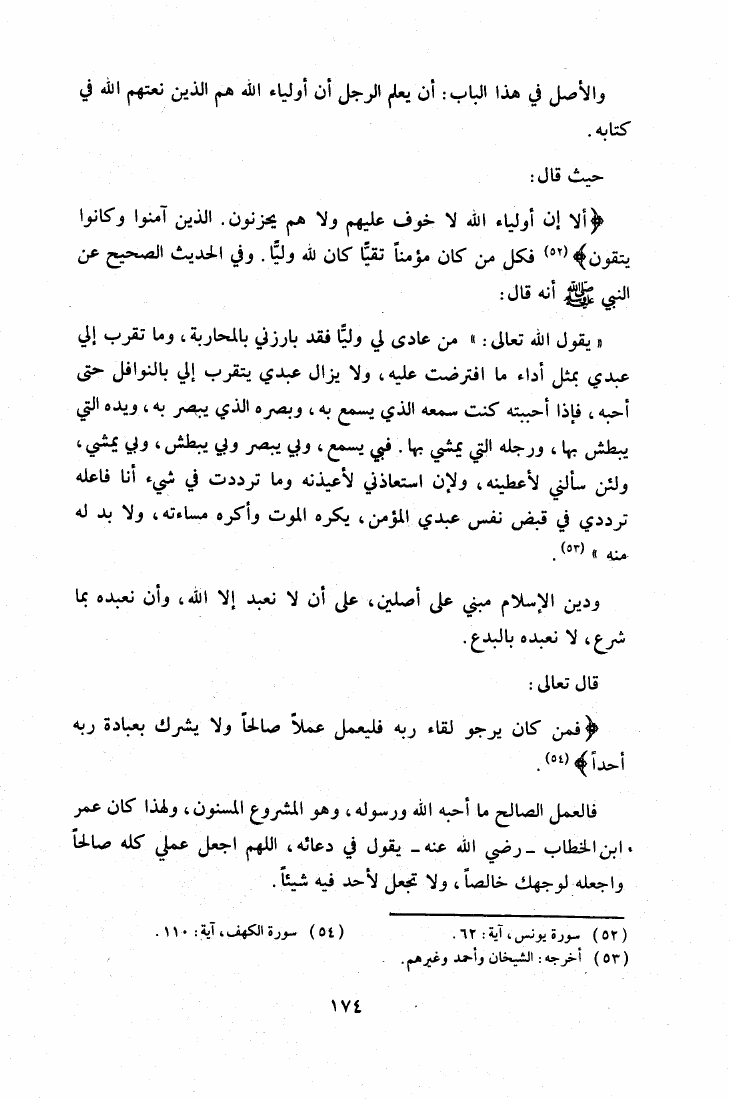 والأصل في هذا الباب: أن يعلم الرجل أن أولياء الله هم الذين نعتهم الله في
كتابه.
حيث قال:
﴿ألا إن أولياء الله لا خوف عليهم ولا هم يحزنون. الذين آمنوا وكانوا
يتقون﴾ (٥٢) فكل من كان مؤمناً تقيًّا كان لله وليًّا. وفي الحديث الصحيح عن
النبي ﷺ أنه قال:
« يقول الله تعالى: » من عادى لي وليًّا فقد بارزني بالمحاربة، وما تقرب إلي
عبدي بمثل أداء ما افترضت عليه، ولا يزال عبدي يتقرب إلي بالنوافل حتى
أحبه، فإذا أحببته كنت سمعه الذي يسمع به، وبصره الذي يبصر به، ويده التي
يبطش بها، ورجله التي يمشي بها. فبي يسمع، وبي يبصر وبي يبطش، وبي يمشي،
ولئن سألني لأعطينه، ولإن استعاذني لأعيذنه وما ترددت في شيء أنا فاعله
ترددي في قبض نفس عبدي المؤمن، يكره الموت وأكره مساءته، ولا بد له
منه » (٥٣).
ودين الإسلام مبني على أصلين، على أن لا نعبد إلا الله، وأن نعبده بما
شرع، لا نعبده بالبدع.
قال تعالى:
﴿فمن كان يرجو لقاء ربه فليعمل عملاً صالحاً ولا يشرك بعبادة ربه
أحداً﴾ (٥٤).
فالعمل الصالح ما أحبه الله ورسوله، وهو المشروع المسنون، ولهذا كان عمر
ابن الخطاب ـ رضي الله عنه ـ يقول في دعائه، اللهم اجعل عملي كله صالحاً
واجعله لوجهك خالصاً، ولا تجعل لأحد فيه شيئاً.
(٥٢) سورة يونس، آية: ٦٢. (٥٤) سورة الكهف، آية: ١١٠.
(٥٣) أخرجه: الشيخان وأحمد وغيرهم.
١٧٤